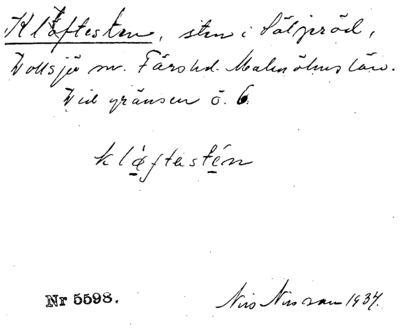 Klöftesten, sten i Säljeröd,
Vollsjö sn. Färs hd. Malmöhus län.
Vid gränsen ö. 6.
klöftestén
Nr 5598. Nils Nilsson 1937.